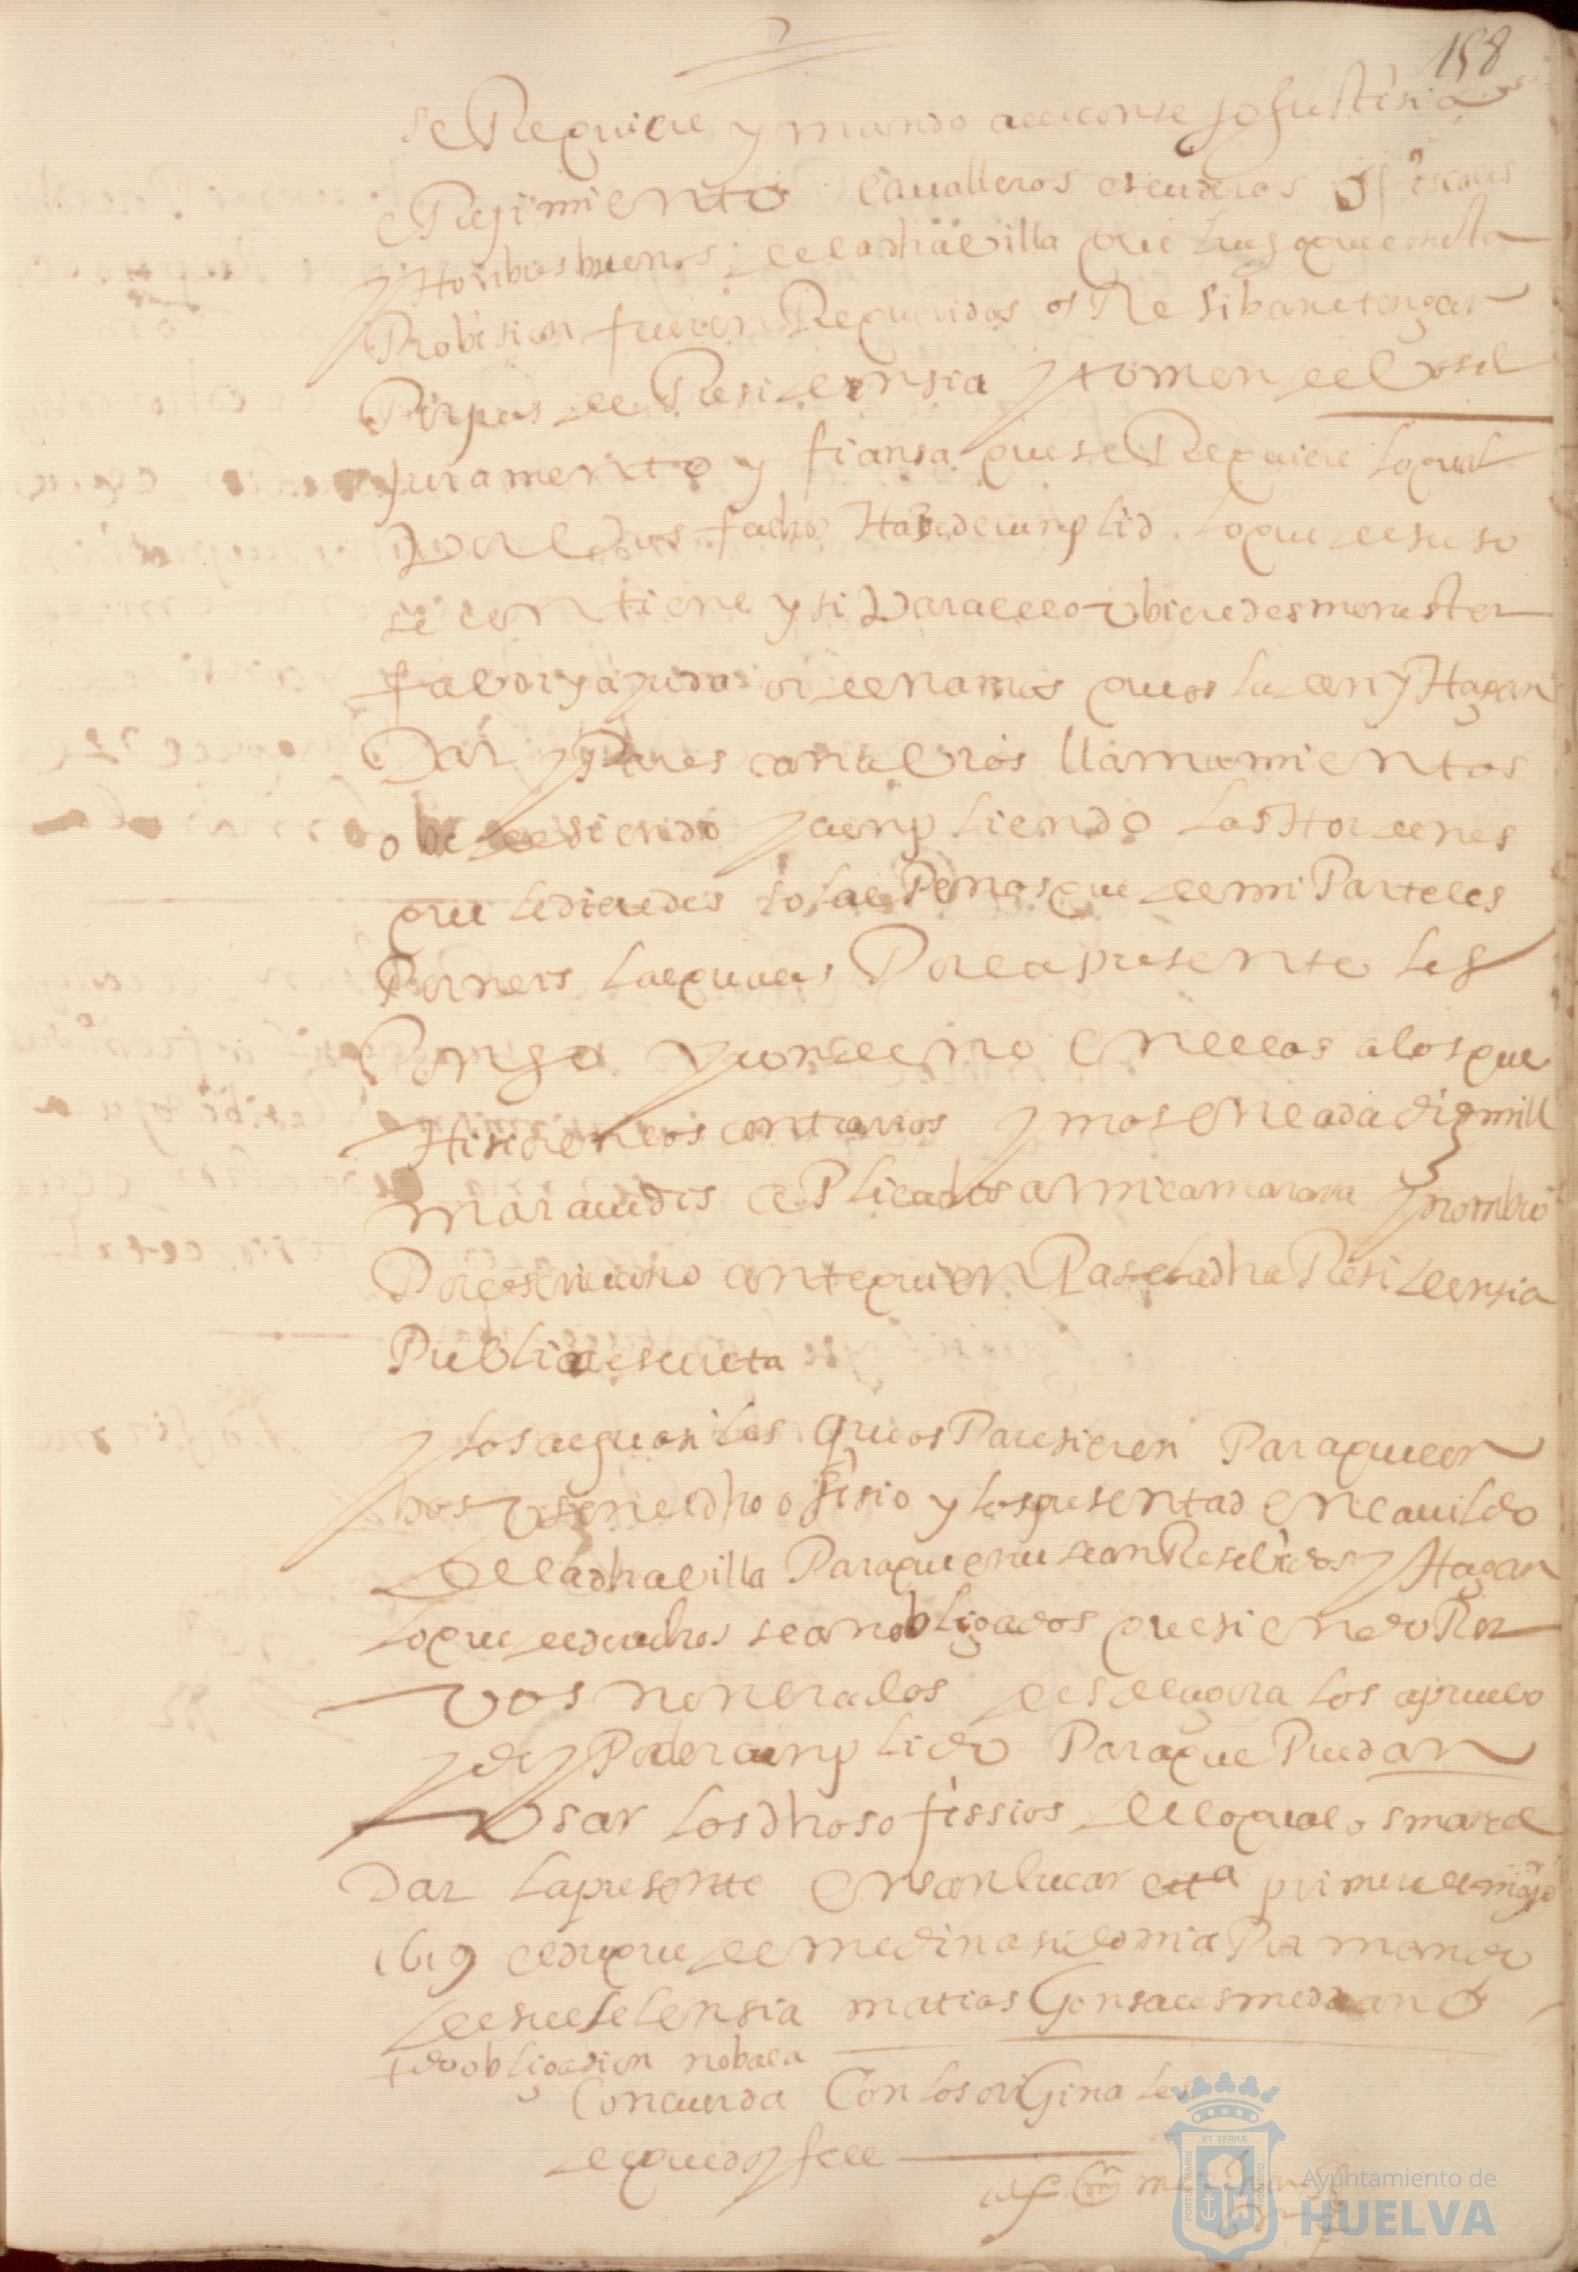 158
se Requiere y mando al consejo Justisia
e Rejimiento cavalleros escuderos ofisiales
y Honbres buenos de la dha villa que luego que con esta
Probision fueren Requeridos os Resiban e tengan
Por jues de Residensia y tomen de vos el
juramento y fiansa que se Requiere lo qual
Por vos fecho Hased e cunplid lo que de suso
se contiene y si Para ello ubieredes menester
fabor y ayuda ordenamos que os la den y Hagan
Dar y Pares can a vros llamamientos
obedesiendo y cunpliendo las Hordenes
que le dieredes so las Penas que de mi Parte les
Porneis las quales Por la presente les
Pongo y condeno en ellas a los que
Hisieren lo contrario y mas en cada dies mill
maravedis aplicados a mi camara y nombro
Por escrivano ante quien Pase la dha Residensia
Publica e secreta
y los alguasiles que os Paresieren Para que con
bos usen el dho ofisio y los presentad en cavildo
de la dha villa Para que en el sean Resebidos y Hagan
lo que de derecho sean obligados que siendo Por
vos nonbrados desde agora los apruebo
y doy Poder cunplido Para que Puedan
Usar los dhos ofissios de lo qual os mande
Dar la presente en sanlucar a primero de mayo
1619 el duque de medina sidonia Por mandado
de su exselensia matias Gonsales medrano
tdo obligasion no bala
Concuerda Con los oriGinales
de que doy fee
ET TERRÆ
PORTUS MARIS
CUSTODIA
Ayuntamiento de
HUELVA